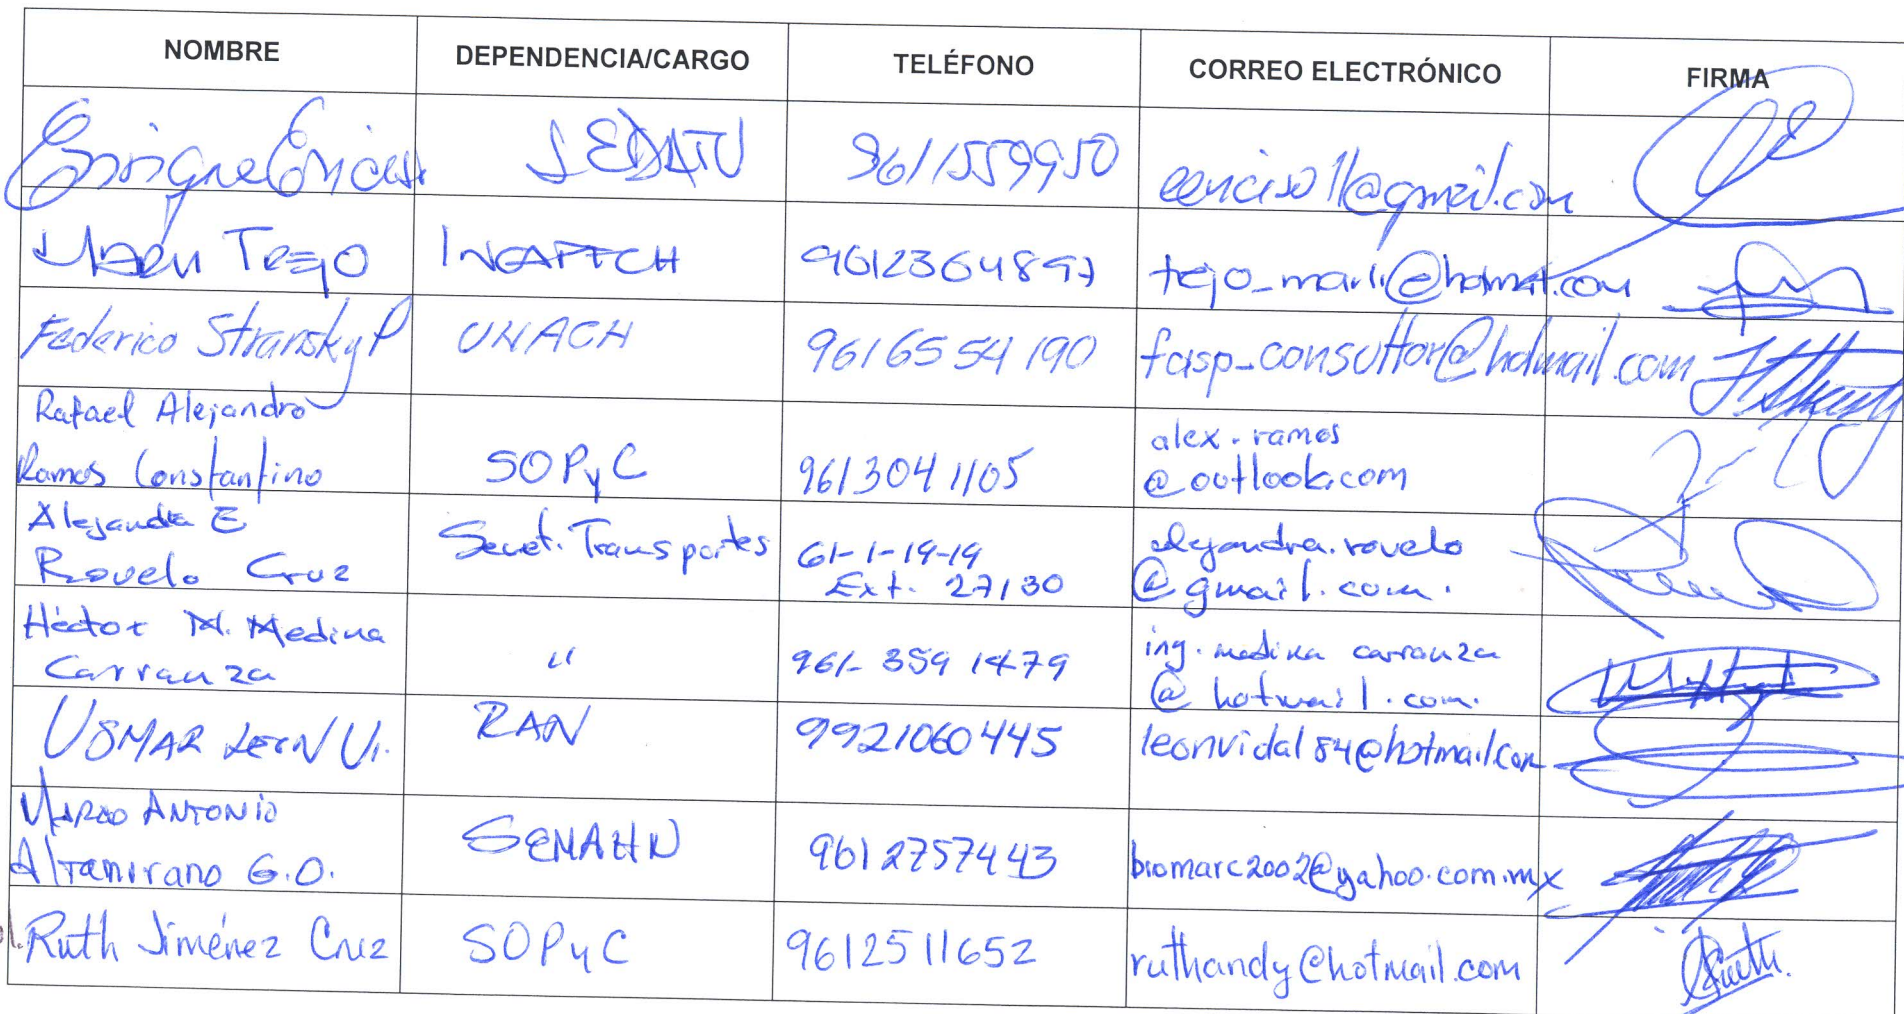 NOMBRE DEPENDENCIA/CARGO TELÉFONO CORREO ELECTRÓNICO FIRMA
Enrique Enciso SEDATU 9611559950 eenciso11@gmail.com
Trejo 9612364897
Federico Stransky P UNACH 9616554190 fasp_consultor@hotmail.com
Rafael Alejandro
Ramos Constantino
SOPyC 9613041105
alex.ramos
@outlook.com
Alejandra E
Rovelo Cruz
Secret. Transportes
61-1-19-19
Ext. 27130
alejandra.rovelo
@gmail.com.
Héctor M. Medina
Carranza
" 961-359 1479
ing.medina carranza
@hotmail.com.
USMAR LEON Vi. RAN 9921060445 leonvidal84@hotmail.com
MARCO ANTONIO
Altamirano G.O.
SEMAHN 9612757443 biomarc2002@yahoo.com.mx
Ruth Jiménez Cruz SOPyC 9612511652 ruthandy@hotmail.com
Ruth.